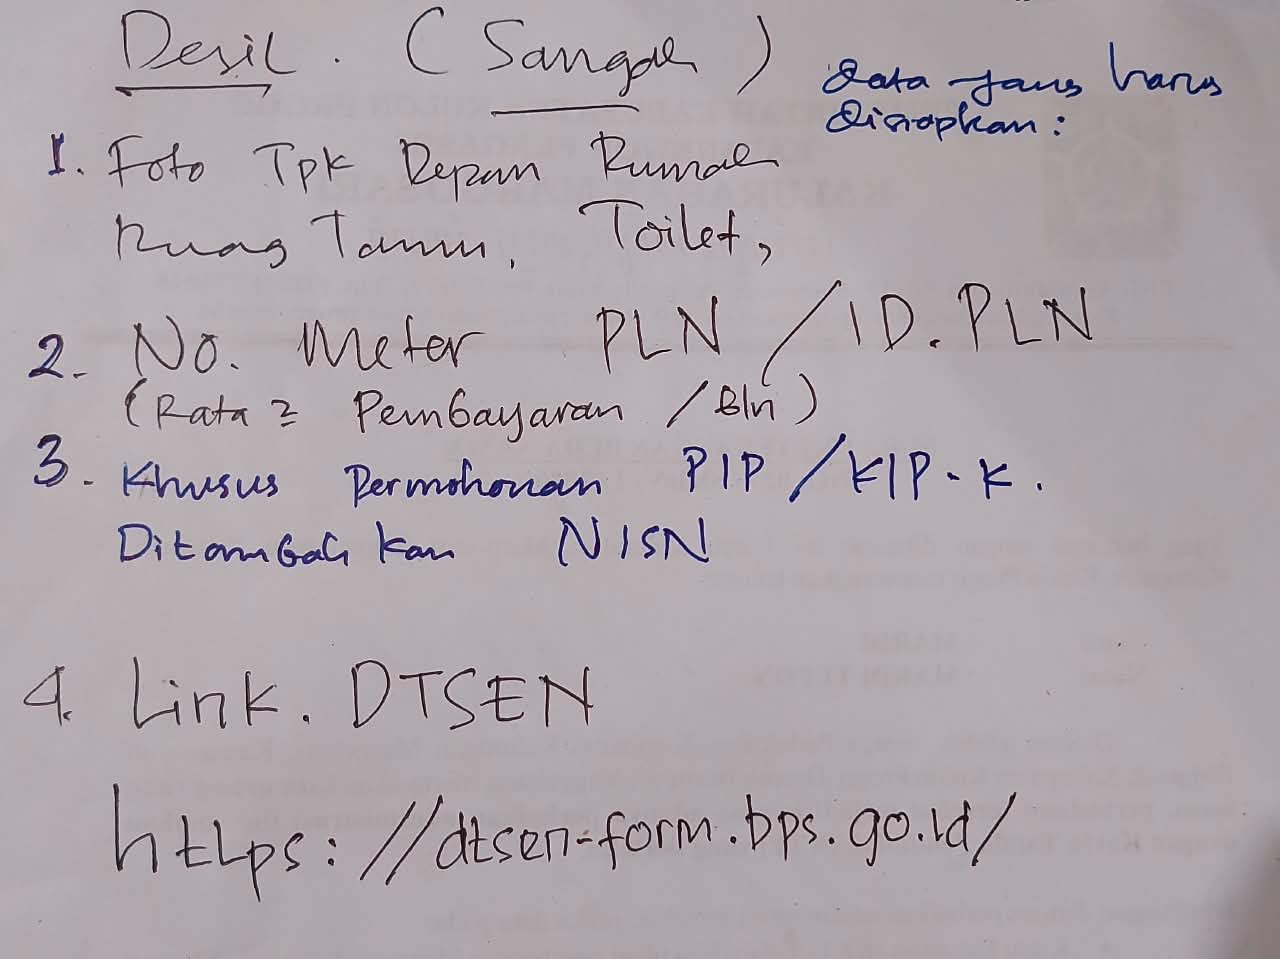 Desil. (Sanggah)
data yang harus
disiapkan:
1. Foto Tpk Depan Rumah
Ruag Tamu, Toilet,
2. No. Meter PLN / ID. PLN
(Rata2 Pembayaran / Bln)
3. Khusus Permohonan PIP / KIP-K.
Ditambah kan NISN
4. Link. DTSEN
https://dtsen-form.bps.go.id/